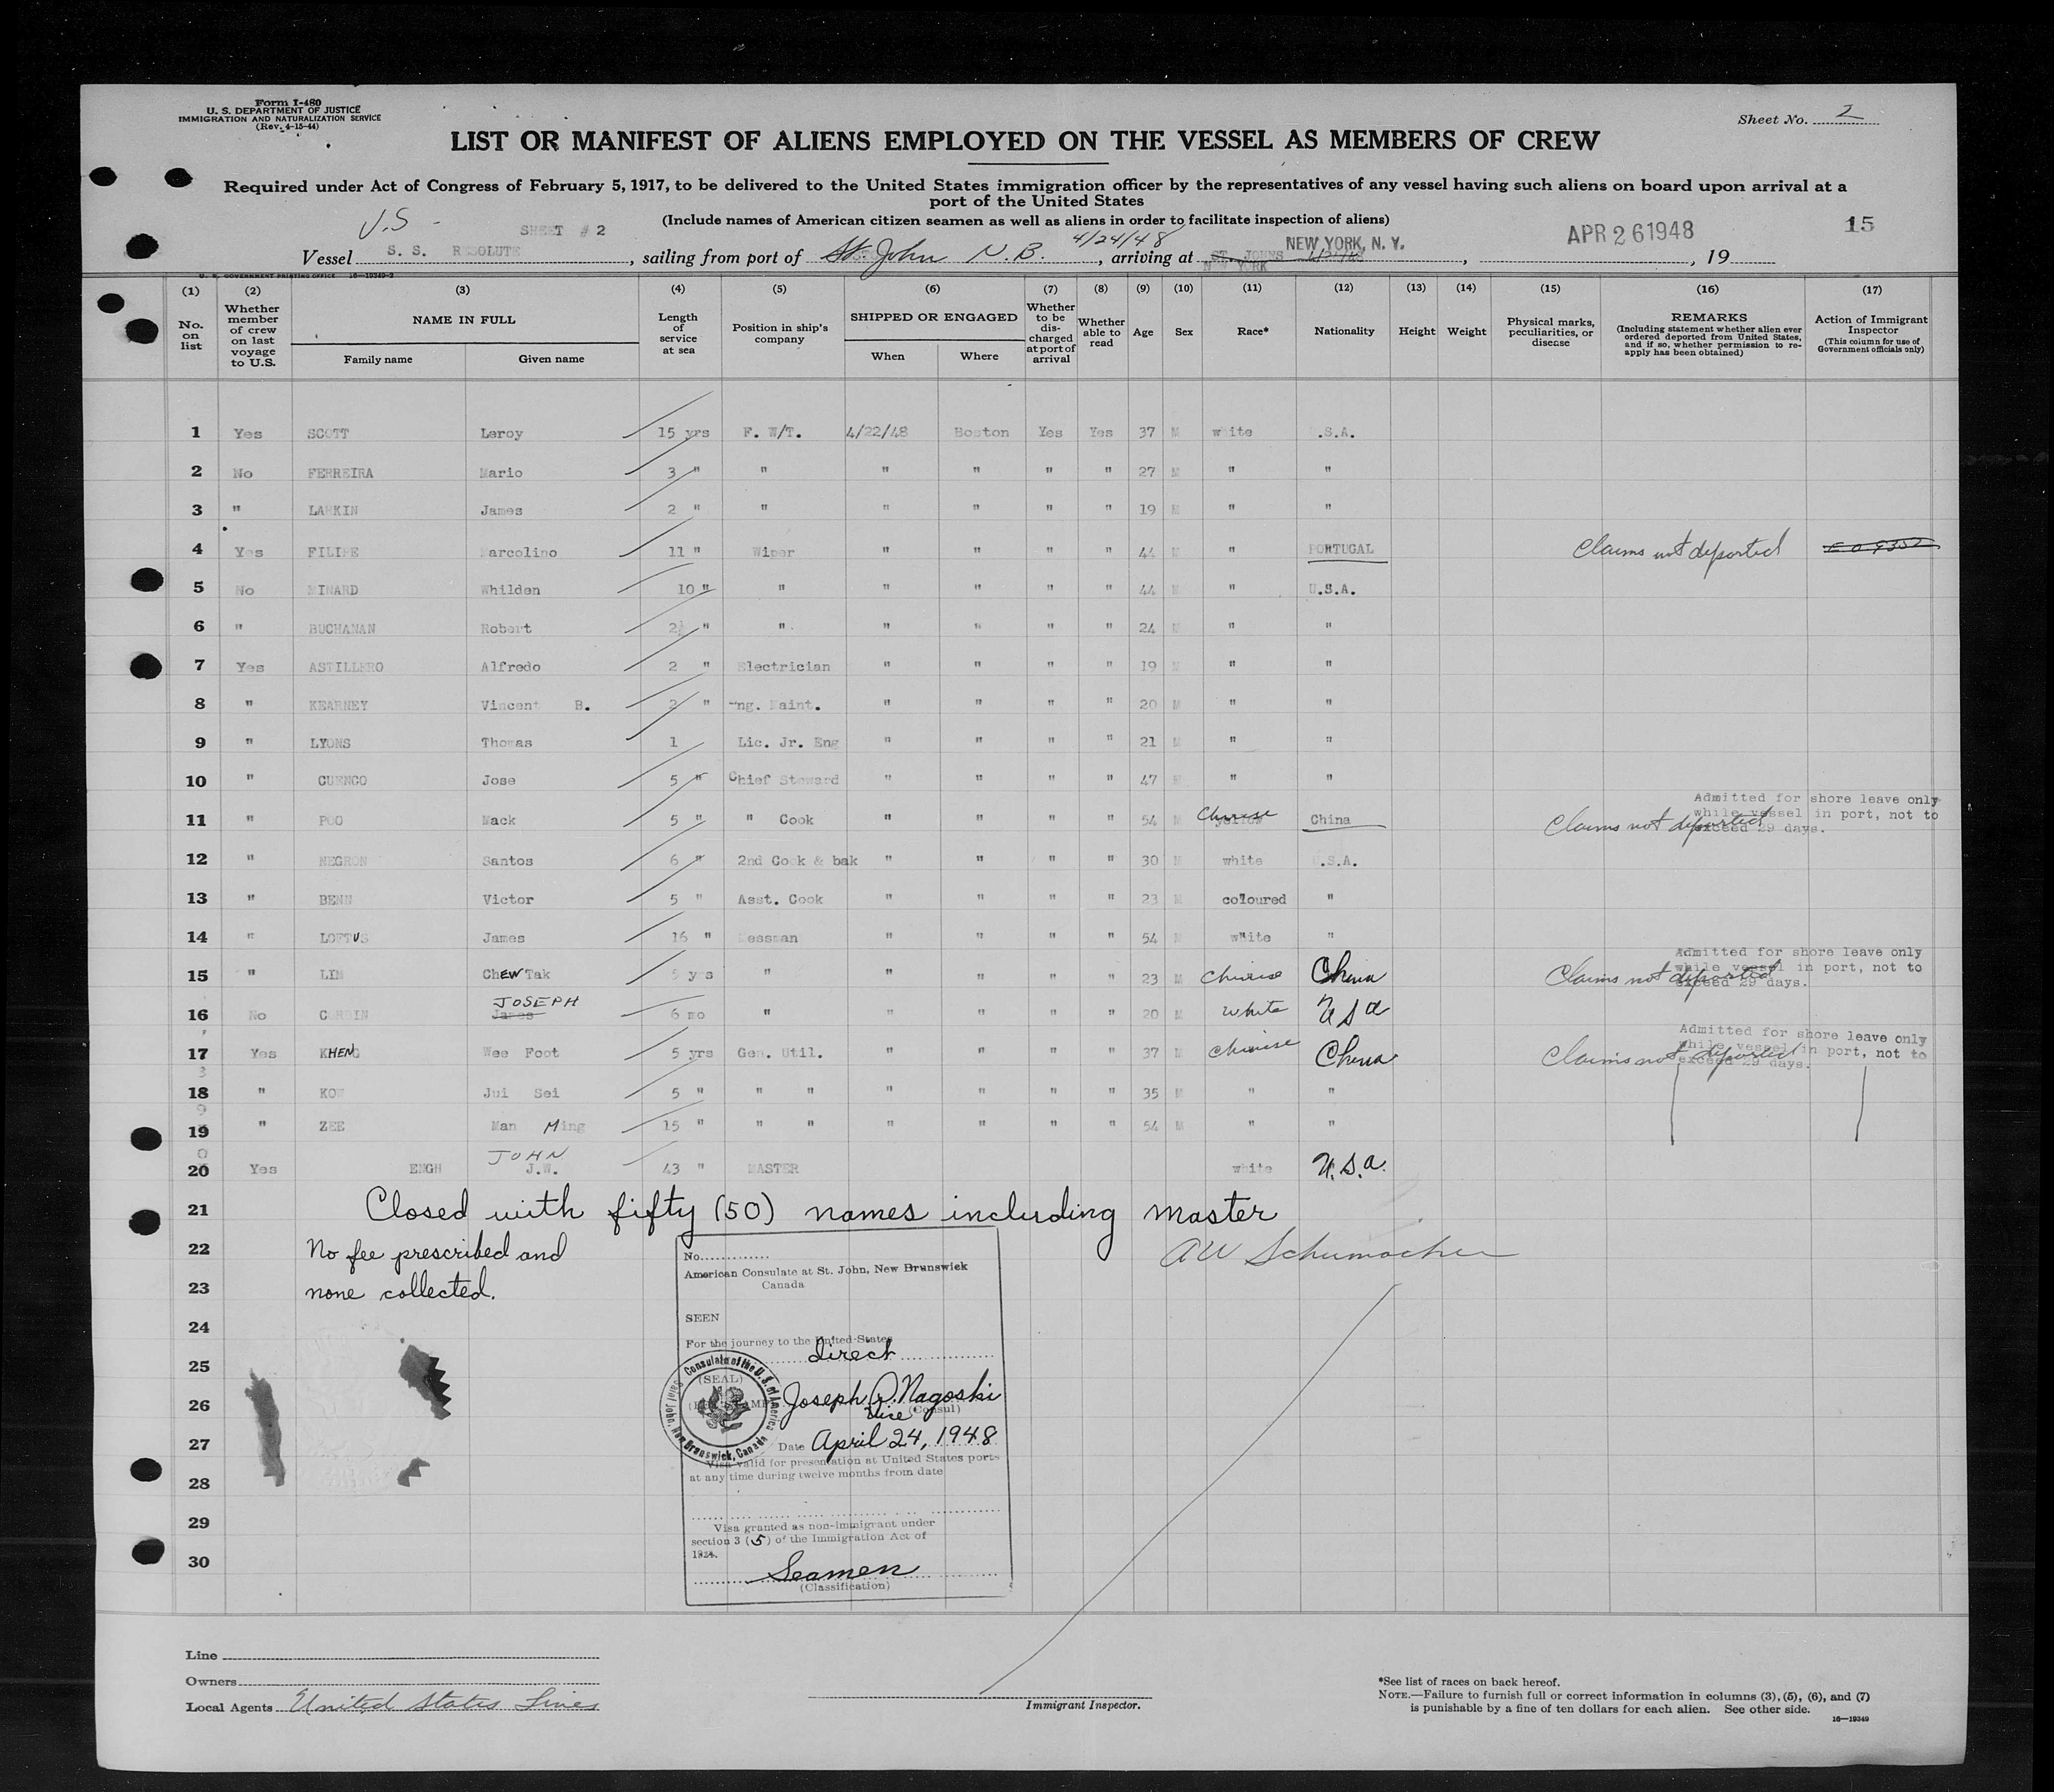 Form I-480
U. S. DEPARTMENT OF JUSTICE
IMMIGRATION AND NATURALIZATION SERVICE
(Rev. 4-15-44)
Sheet No. 2
LIST OR MANIFEST OF ALIENS EMPLOYED ON THE VESSEL AS MEMBERS OF CREW
Required under Act of Congress of February 5, 1917, to be delivered to the United States immigration officer by the representatives of any vessel having such aliens on board upon arrival at a
port of the United States
(Include names of American citizen seamen as well as aliens in order to facilitate inspection of aliens)
U.S - SHEET # 2 4/24/48 NEW YORK, N. Y. APR 26 1948 15
Vessel S. S. RESOLUTE, sailing from port of St. John N.B., arriving at ST. JOHNS, 19
NEW YORK
U. S. GOVERNMENT PRINTING OFFICE 16-19349-2
(1) (2) (3) (4) (5) (6) (7) (8) (9) (10) (11) (12) (13) (14) (15) (16) (17)
No. on list
Whether member of crew on last voyage to U.S.
NAME IN FULL
Family name
Given name
Length of service at sea
Position in ship's company
SHIPPED OR ENGAGED
When
Where
Whether to be discharged at port of arrival
Whether able to read
Age
Sex
Race*
Nationality
Height
Weight
Physical marks, peculiarities, or disease
REMARKS
(Including statement whether alien ever ordered deported from United States, and if so, whether permission to re-apply has been obtained)
Action of Immigrant Inspector
(This column for use of Government officials only)
1 Yes SCOTT Leroy 15 yrs F. W/T. 4/22/48 Boston Yes Yes 37 M white .S.A.
2 No FERREIRA Mario 3 " " " " " " 27 M " "
3 " LARKIN James 2 " " " " " " 19 M " "
4 Yes FILIPE Marcolino 11 " Wiper " " " " 44 M " PORTUGAL Claims not deported E O 9352
5 No MINARD Whilden 10 " " " " " " 44 M " U.S.A.
6 " BUCHANAN Robert 2½ " " " " " " 24 M " "
7 Yes ASTILLERO Alfredo 2 " Electrician " " " " 19 M " "
8 " KEARNEY Vincent B. 2 " Eng. Maint. " " " " 20 M " "
9 " LYONS Thomas 1 Lic. Jr. Eng " " " " 21 M " "
10 " CUENCO Jose 5 " Chief Steward " " " " 47 M " "
11 " POO Mack 5 " " Cook " " " " 54 M Chinese yellow China Claims not deported Admitted for shore leave only while vessel in port, not to exceed 29 days.
12 " NEGRON Santos 6 " 2nd Cook & bak " " " " 30 M white U.S.A.
13 " BENN Victor 5 " Asst. Cook " " " " 23 M coloured "
14 " LOFTUS James 16 " Messman " " " " 54 M white "
15 " LIM CHEW Tak 5 yrs " " " " " 23 M Chinese China Claims not deported Admitted for shore leave only while vessel in port, not to exceed 29 days.
JOSEPH
16 No CORBIN James 6 mo " " " " " 20 M White U S A
17 Yes KHENG Wee Foot 5 yrs Gen. Util. " " " " 37 M Chinese China Claims not deported Admitted for shore leave only while vessel in port, not to exceed 29 days.
18 " KOW Jui Sei 5 " " " " " " " 35 M " "
19 " ZEE Man Ming 15 " " " " " " " 54 M " "
JOHN
20 Yes ENGH J.W. 43 " MASTER white U.S.A.
21 Closed with fifty (50) names including master
22 No fee prescribed and A W Schumacher
23 none collected.
24
25
26
27
28
29
30
No.
American Consulate at St. John, New Brunswick
Canada
SEEN
For the journey to the United States
direct
Consulate of the U. S. of America
Saint John, New Brunswick, Canada
(SEAL)
Joseph D. Nagoski
Vice (Consul)
Date April 24, 1948
Visa valid for presentation at United States ports
at any time during twelve months from date
Visa granted as non-immigrant under
section 3 (5) of the Immigration Act of
1924.
Seamen
(Classification)
Line
Owners
Local Agents United States Lines
Immigrant Inspector.
*See list of races on back hereof.
NOTE.—Failure to furnish full or correct information in columns (3), (5), (6), and (7)
is punishable by a fine of ten dollars for each alien. See other side.
16—19349